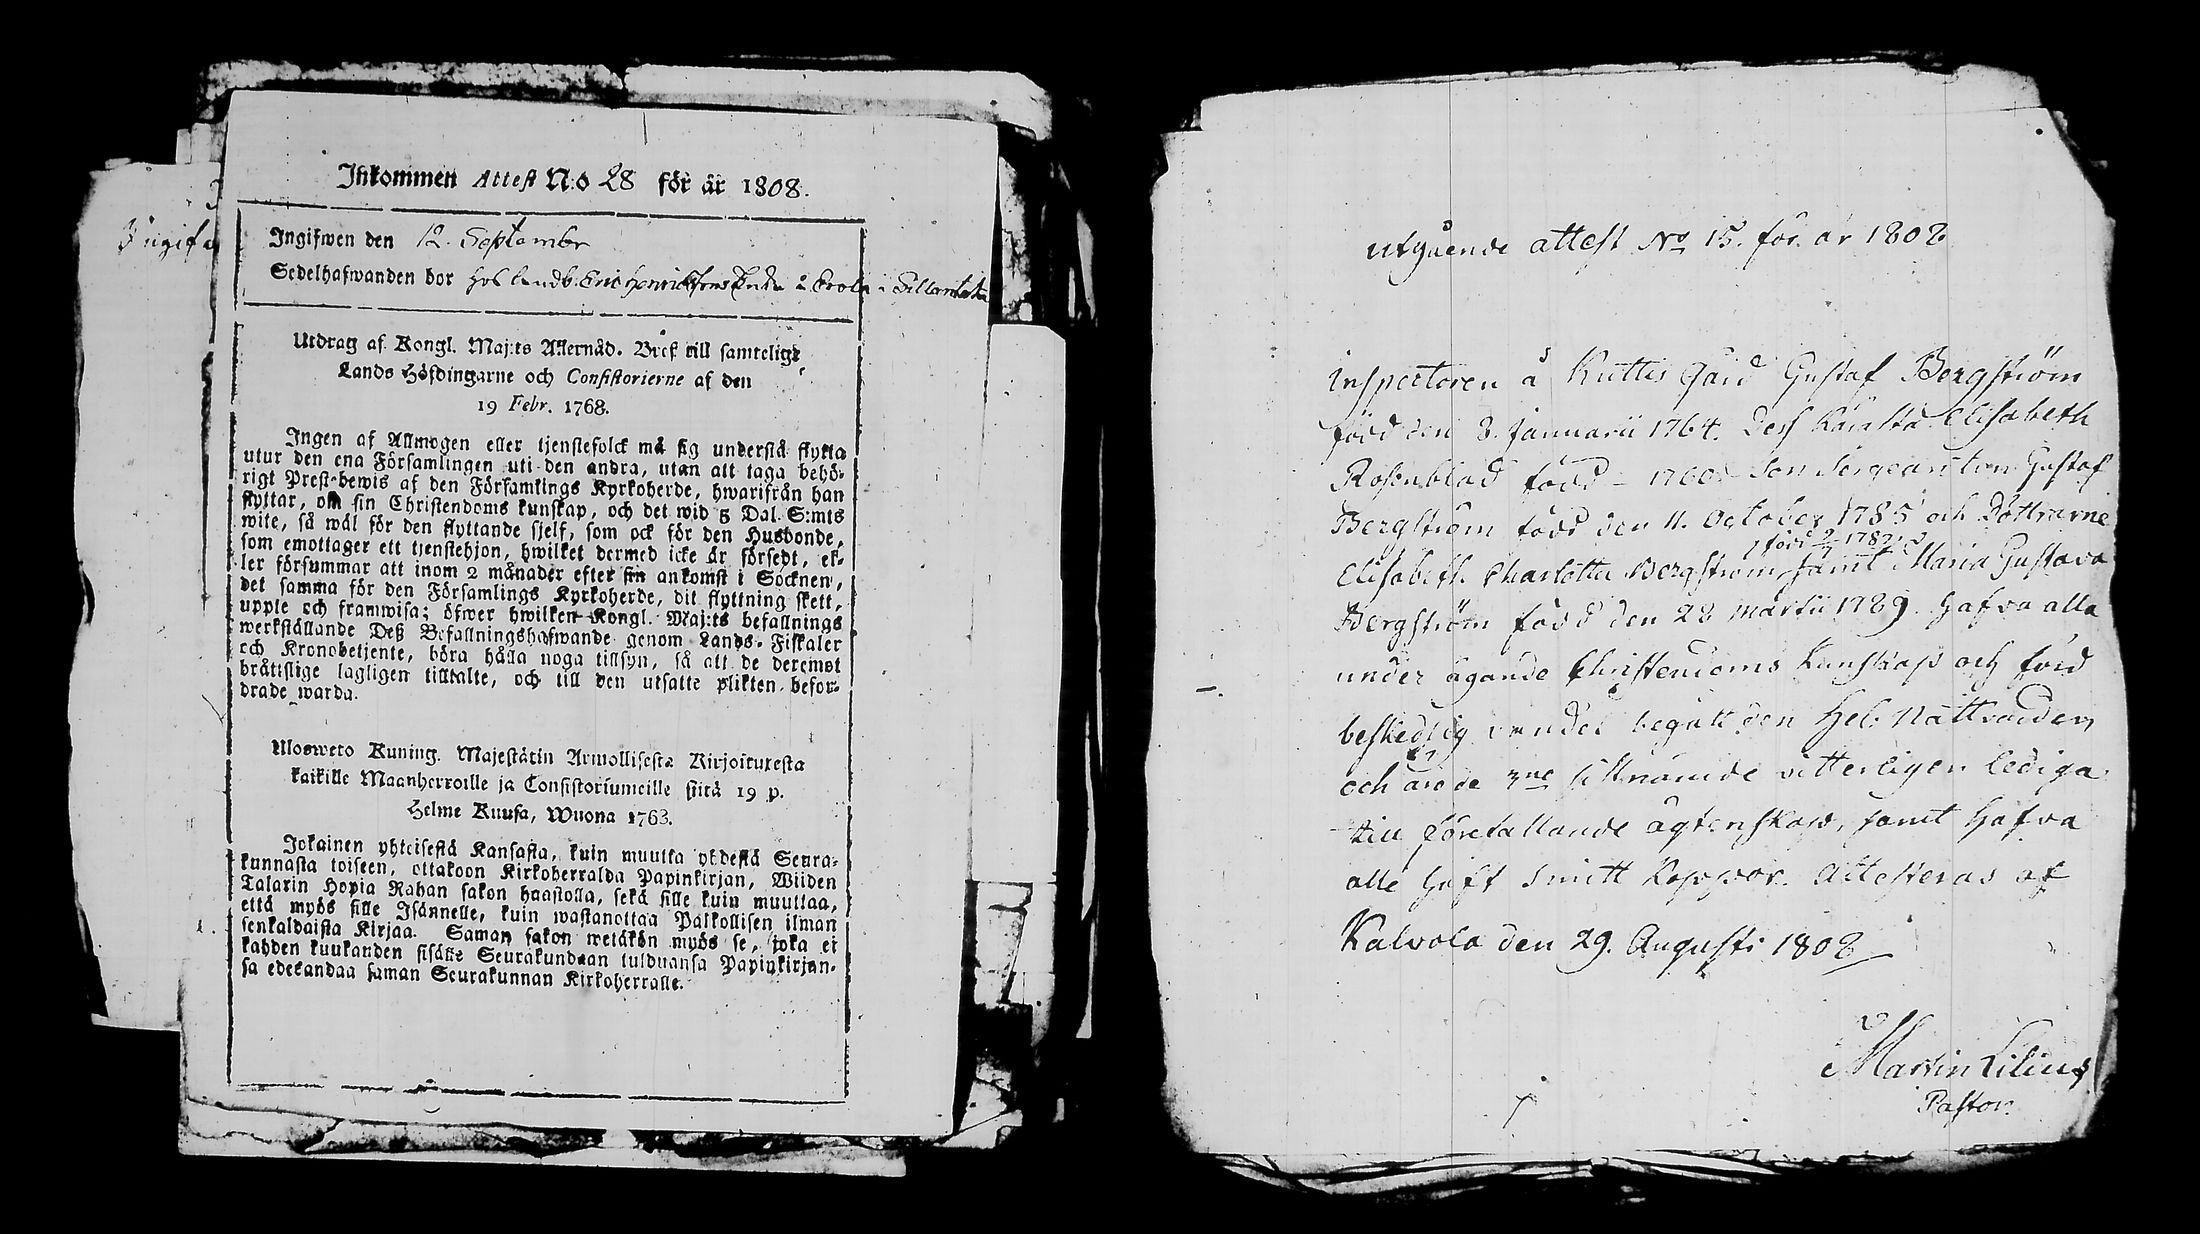 Ingifw
Inkommen Attest N:o 28 för år 1808.
Ingifwen den 12. Septembr
Sedelhafwanden bor hos landb. Eric Henricksson å i
Utdrag af Kongl. Maj:ts Allernåd. Bref till samtelige
Lands Höfdingarne och Consistorierne af den
19 Febr. 1768.
Ingen af Allmogen eller tjenstefolck må sig understå flytta
utur den ena Församlingen uti den andra, utan att taga behö-
rigt Prest-bewis af den Församlings Kyrkoherde, hwarifrån han
flyttar, om sin Christendoms kunskap, och det wid 5 Dal. S:mts
wite, så wäl för den flyttande sjelf, som ock för den Husbonde,
som emottager ett tjenstehjon, hwilket dermed icke är försedt, el-
ler försummar att inom 2 månader efter sin ankomst i Socknen,
det samma för den Församlings Kyrkoherde, dit flyttning skett,
uppte och framwisa; öfwer hwilken Kongl. Maj:ts befallnings
werkställande Deß Befallningshafwande genom Lands-Fiskaler
och Kronobetjente, böra hålla noga tillsyn, så att de deremot
bråttslige lagligen tilltalte, och till den utsatte plikten befor-
drade warda.
Ulosweto Kuning. Majestätin Armollisesta Kirjoituxesta
kaikille Maanherroille ja Consistoriumeille siitä 19 p.
Helme Kuusa, Wuona 1763.
Jokainen yhteisestä Kansasta, kuin muutta yhdestä Seura-
kunnasta toiseen, ottakoon Kirkoherralda Papinkirjan, Wiiden
Talarin Hopia Rahan sakon haastolla, sekä sille kuin muuttaa,
että myös sille Isännelle, kuin wastanottaa Palkollisen ilman
senkaldaista Kirjaa. Saman sakon wetäkön myös se, joka ei
kahden kuukanden sisälle Seurakundaan tulduansa Papinkirjan-
sa edesandaa saman Seurakunnan Kirkoherralle.
utgående attest No 15. för år 1808
Inspectoren å Kuttis Gård Gustaf Bergström
född den 3. Januarii 1764. Dess Käresta Elisabeth
Rosenblad född - 1760. Son Sergeanten Gustaf
Bergström född den 11. October 1785 och Döttrarne
född 1782
Elisabeth Charlotta Bergström, samt Maria Gustava
Bergström född den 28 Martii 1789. hafva alla
under ägande Christendoms Kunskap och förd
beskedlig vandel begått den Hel. Nattvarden,
och äro de 3ne sistnämde vitterligen lediga
till förefallande ägtenskap, samt hafva
alle haft Smitt Koppor. Attesteras af
Kalvola den 29. Augusti 1808
Martin Lilius
Pastor.